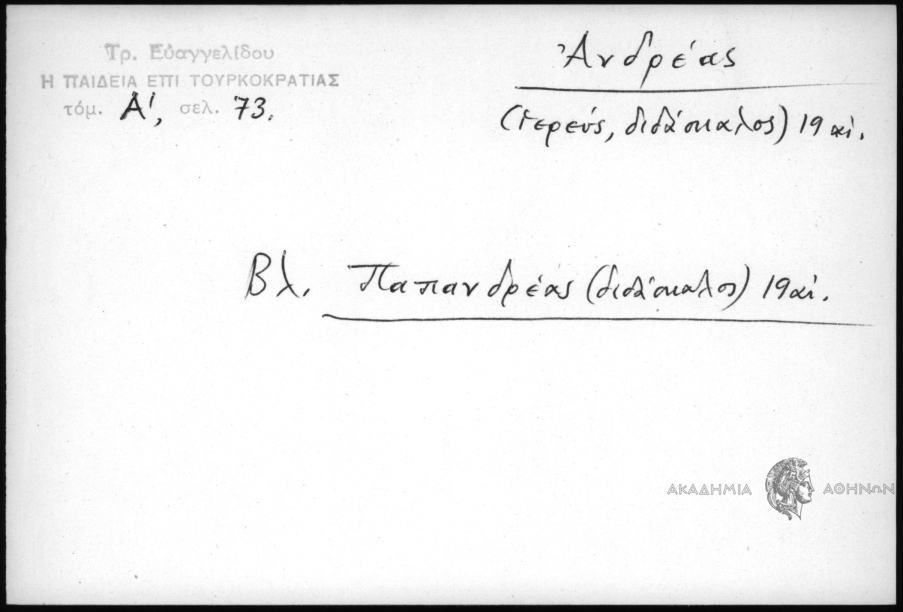 Τρ. Εὐαγγελίδου
Η ΠΑΙΔΕΙΑ ΕΠΙ ΤΟΥΡΚΟΚΡΑΤΙΑΣ
τόμ. Α', σελ. 73.
Ἀνδρέας
(ἱερεύς, διδάσκαλος) 19 αἰ.
Βλ. Παπανδρέας (διδάσκαλος) 19 αἰ.
ΑΚΑΔΗΜΙΑ ΑΘΗΝΩΝ